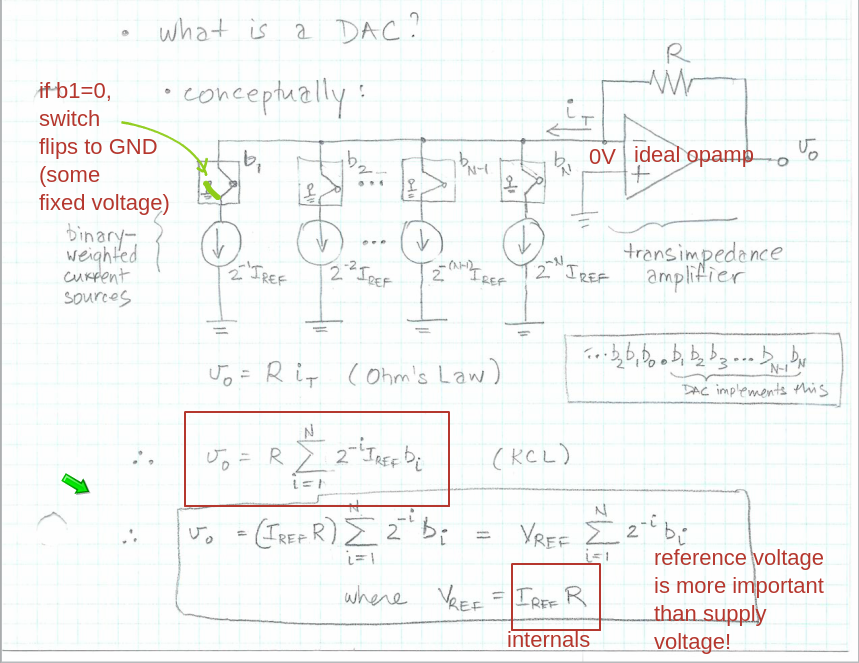 • what is a DAC?
if b1=0,
switch
flips to GND
(some
fixed voltage)
• conceptually:
R
i_T
b_1
b_2
...
b_{N-1}
b_N
0V
ideal opamp
+
v_o
binary-
weighted
current
sources
2^{-1} I_REF
2^{-2} I_REF
...
2^{-(N-1)} I_REF
2^{-N} I_REF
transimpedance
amplifier
v_o = R i_T (Ohm's Law)
...b_2 b_1 b_0 . b_1 b_2 b_3 ... b_{N-1} b_N
DAC implements this
∴ v_o = R ∑_{i=1}^{N} 2^{-i} I_REF b_i (KCL)
∴ v_o = (I_REF R) ∑_{i=1}^{N} 2^{-i} b_i = V_REF ∑_{i=1}^{N} 2^{-i} b_i
where V_REF = I_REF R
internals
reference voltage
is more important
than supply
voltage!